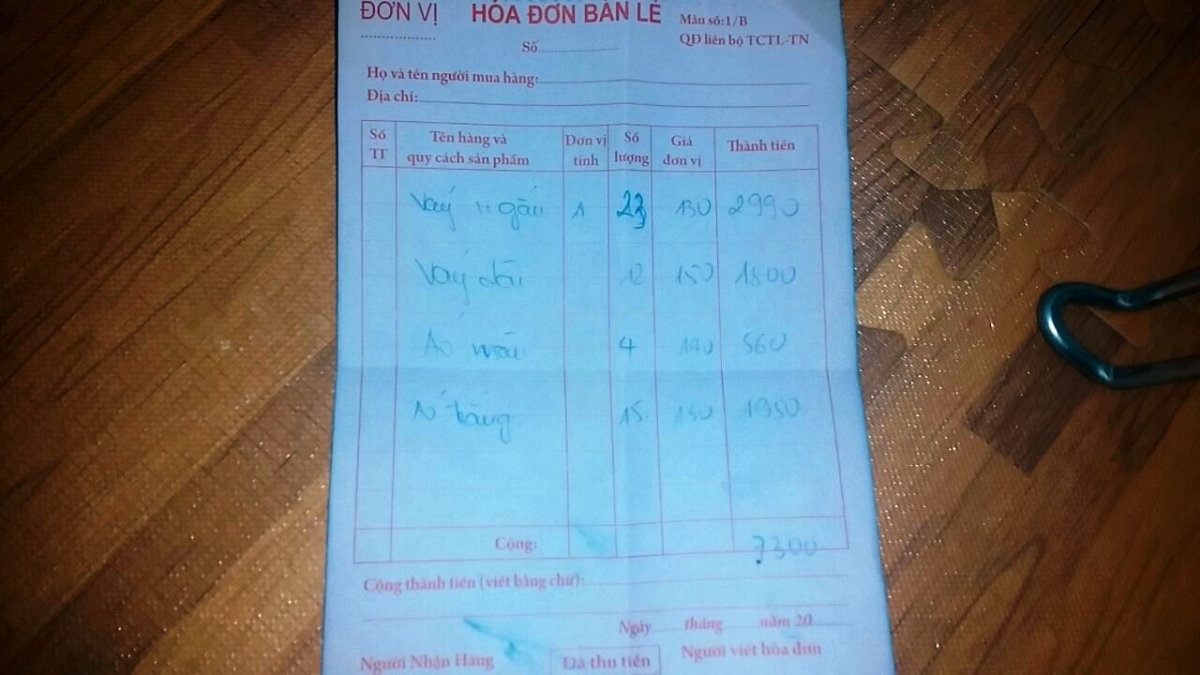 ĐƠN VỊ HÓA ĐƠN BÁN LẺ Mẫu số:1/B
Số QĐ liên bộ TCTL-TN
Họ và tên người mua hàng:
Địa chỉ:
Số TT Tên hàng và quy cách sản phẩm Đơn vị tính Số lượng Giá đơn vị Thành tiền
Váy ngắn 1 23 130 2990
Váy dài 12 150 1800
Áo 4 140 560
Áo trắng 15 130 1950
Cộng: 7300
Cộng thành tiền (viết bằng chữ):
Ngày tháng năm 20
Người Nhận Hàng Đã thu tiền Người viết hóa đơn